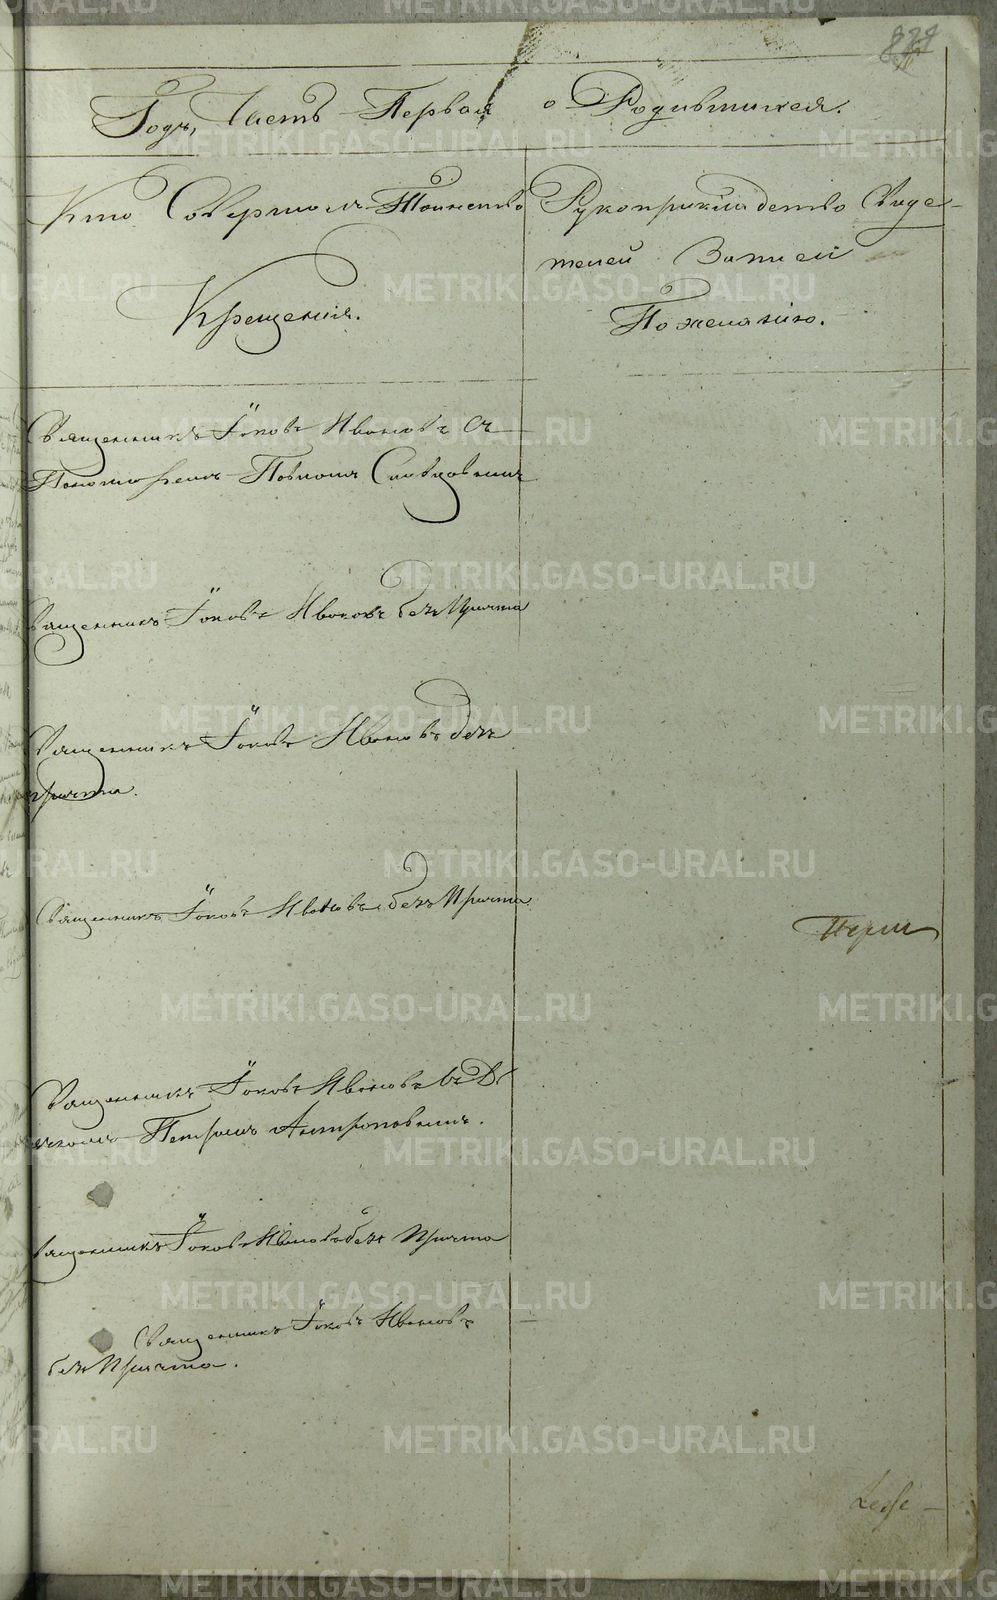 Годъ, Часть Первая о Родившихся.
Кто Совершалъ Таинство
Крещенія.
Рукоприкладство Свиде-
телей Записи
По желанію.
Священникъ Іаковъ Ивановъ съ
Пономаремъ Павломъ
Священникъ Іаковъ Ивановъ безъ Причта
Священникъ Іаковъ Ивановъ безъ
Причта.
Священникъ Іаковъ Ивановъ безъ Причта
Священникъ Іаковъ Ивановъ съ Дь
ячкомъ Петромъ Антроповымъ.
Священникъ Іаковъ Ивановъ безъ Причта
Священникъ Іаковъ Ивановъ
безъ Причта.
METRIKI.GASO-URAL.RU